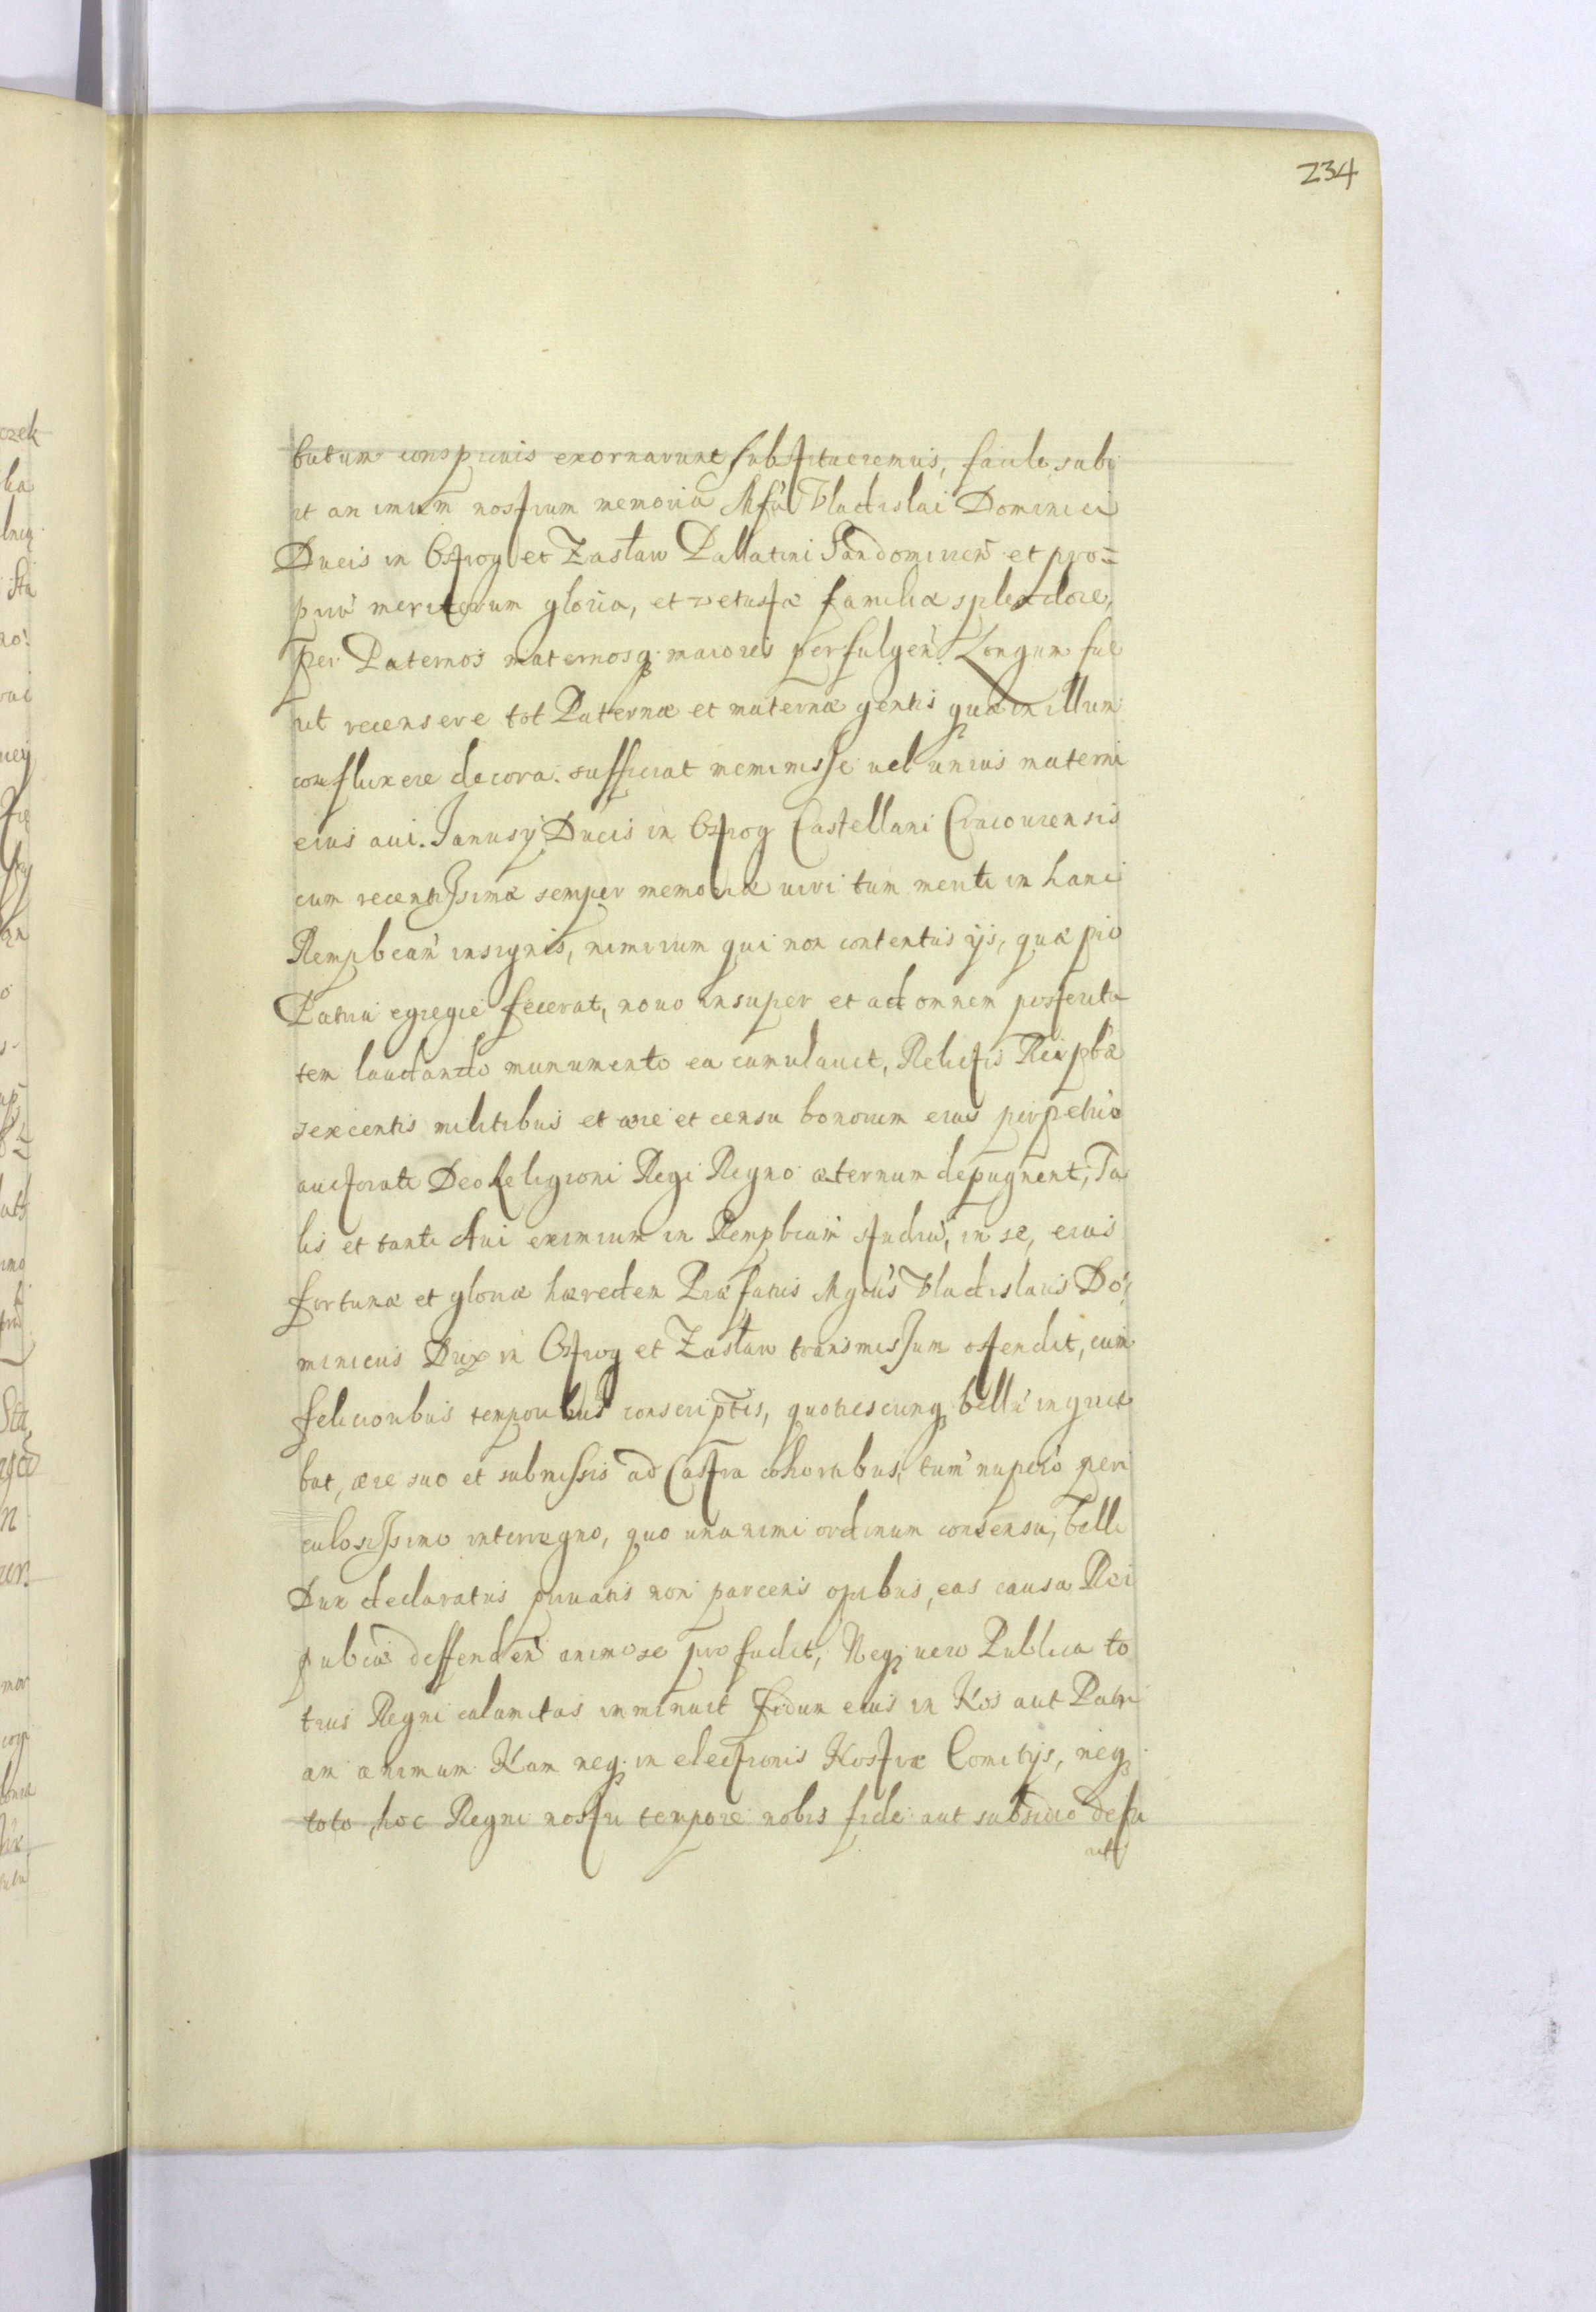 234
butum conspicuis exornarunt substitueremus, facile subi
it animum nostrum memoria Mfci Vladislai Dominici
Ducis in Ostrog et Zasław Pallatini Sandomirien̄ et pro=
priâ meritorum gloria, et vetustæ familiæ splendore,
per Paternos maternosq. maiores perfulgen̄. Longum fue
rit recensere tot Paternæ et maternæ gentis quæ in illum
confluxere decora. sufficiat meminisse uel unius materni
eius aui. Janusÿ Ducis in Ostrog Castellani Cracouiensis
cum recentissimæ semper memoriæ uiri tum mente in hanc
Rempbcam̄ insignis, nimirum qui non contentus ijs, quæ pro
Patria egregie fecerat, nouo insuper et ad omnem posterita
tem laudando munumento ea cumulauit, Relictis Reipbcæ
sexcentis militibus et ære et censu bonorum eius perpetuo
auctorati Deo Religioni Regi Regno æternum depugnent, Ta
lis et tanti Aui eximium in Rempbcam̄ studiū, in se, eius
fortunæ et gloriæ hæredem Præfatus Mgcus Vladislaus Do=
minicus Dux in Ostrog et Zasław transmissum ostendit, cum
felicioribus temporibus conscriptis, quotiescunq bellū ingrue
bat, ære suo et submissis ad Castra cohortibus, tum nupero peri
culosissimo interregno, quo unanimi ordinum consensu, belli
Dux declaratus priuatis non parcens opibus, eas causa Rei
pubcæ deffenden̄ animose profudit, Neq uero Publica to
tius Regni calamitas imminuit fidum eius in Nos aut Patri
am animum Nam neq. in electionis Nostræ Comitÿs, neq
toto hoc Regni nostri tempore nobis fide aut subsidio defu
it